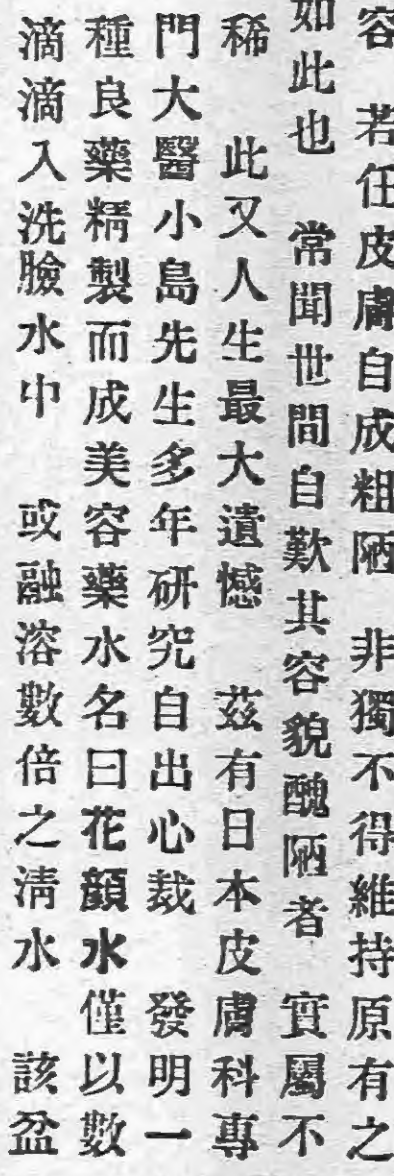 容　若任皮膚自成粗陋　非獨不得維持原有之
如此也　常聞世間自歎其容貌醜陋者　實屬不
稀　此又人生最大遺憾　茲有日本皮膚科專
門大醫小島先生多年研究自出心裁　發明一
種良藥精製而成美容藥水名曰花顏水僅以數
滴滴入洗臉水中　或融溶數倍之清水　該盆